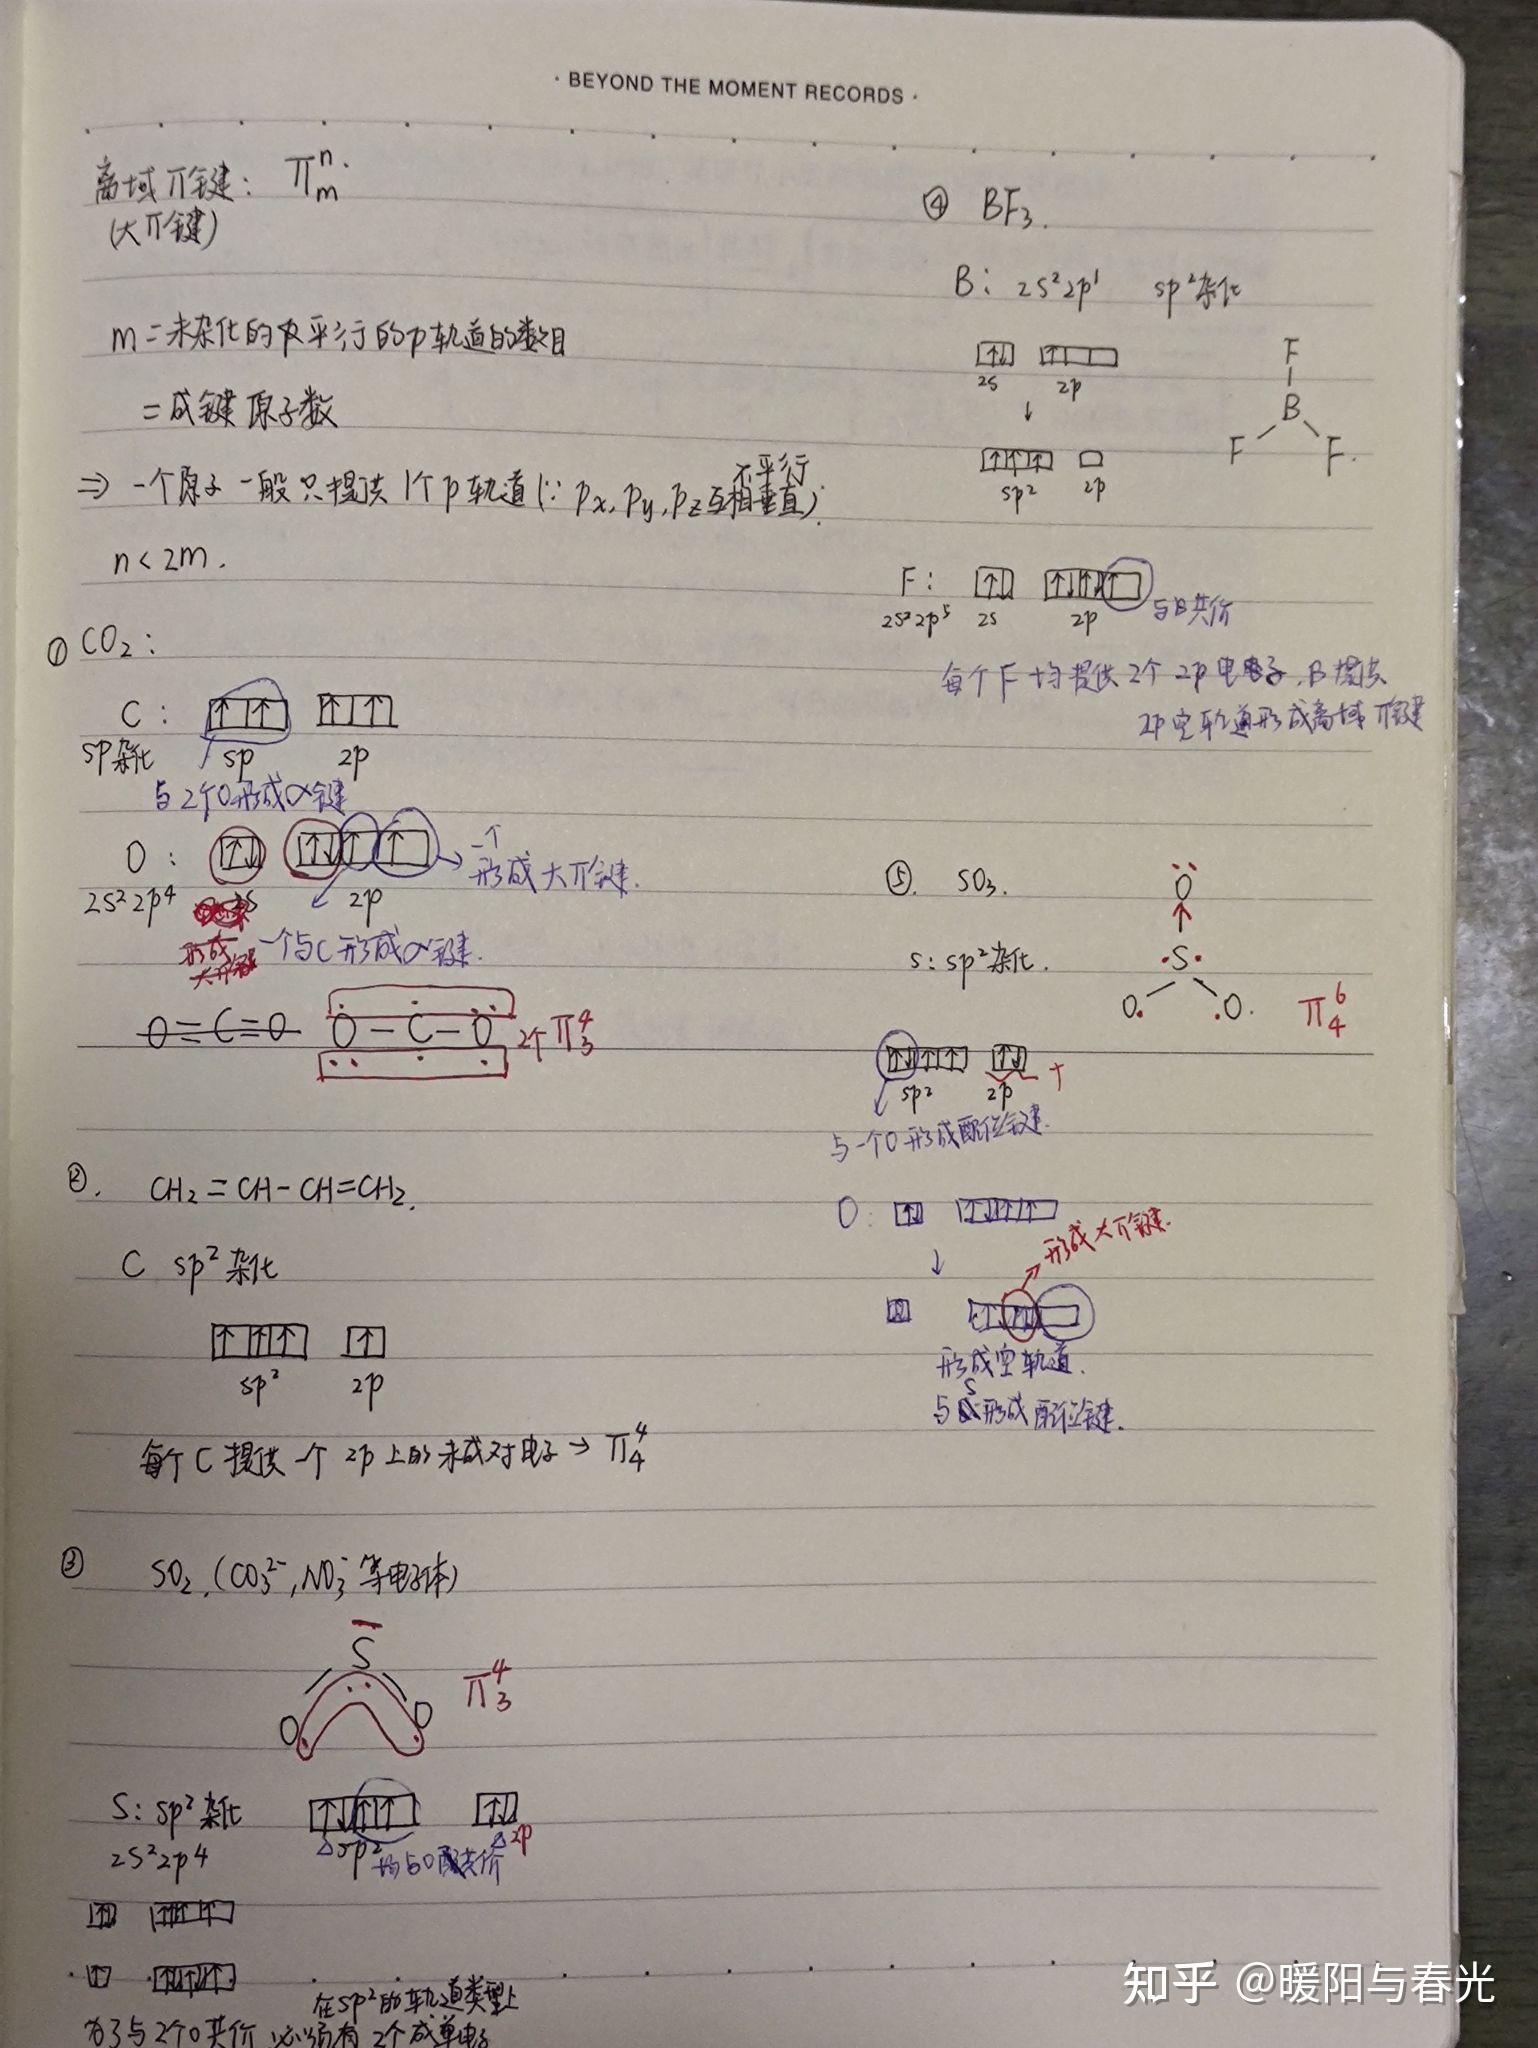 · BEYOND THE MOMENT RECORDS ·
离域π键: π
n
m
(大π键)
m=未杂化的平行的p轨道的数目
=成键原子数
⇒ 一个原子一般只提供1个p轨道(∵ px, py, pz互相垂直)
不平行
n<2m.
① CO₂:
C:
sp杂化
sp 2p
与2个O形成σ键
O:
2s²2p⁴
2p
一个
形成大π键.
一个与C形成σ键.
O=C=O O-C-O 2个π₃⁴
②. CH₂=CH-CH=CH₂.
C sp²杂化
sp² 2p
每个C提供一个2p上的未成对电子→π₄⁴
③ SO₂.(CO₃²⁻, NO₃⁻等电子体)
S
O O
π₃⁴
S: sp²杂化
2s²2p⁴
sp² 2p
均与O共价
在sp²的轨道类型上
为了与2个O共价 必须有2个成单电子
④ BF₃.
B: 2s²2p¹ sp²杂化
2s 2p
↓
sp² 2p
F
B
F F.
F:
2s²2p⁵ 2s 2p
与B共价
每个F均提供2个2p电子,B提供
2p空轨道形成离域π键
⑤. SO₃.
O
↑
S: sp²杂化.
S
O O.
π₄⁶
sp² 2p
与一个O形成配位键.
O:
↓
形成大π键.
形成空轨道.
与S形成配位键.
知乎 @暖阳与春光